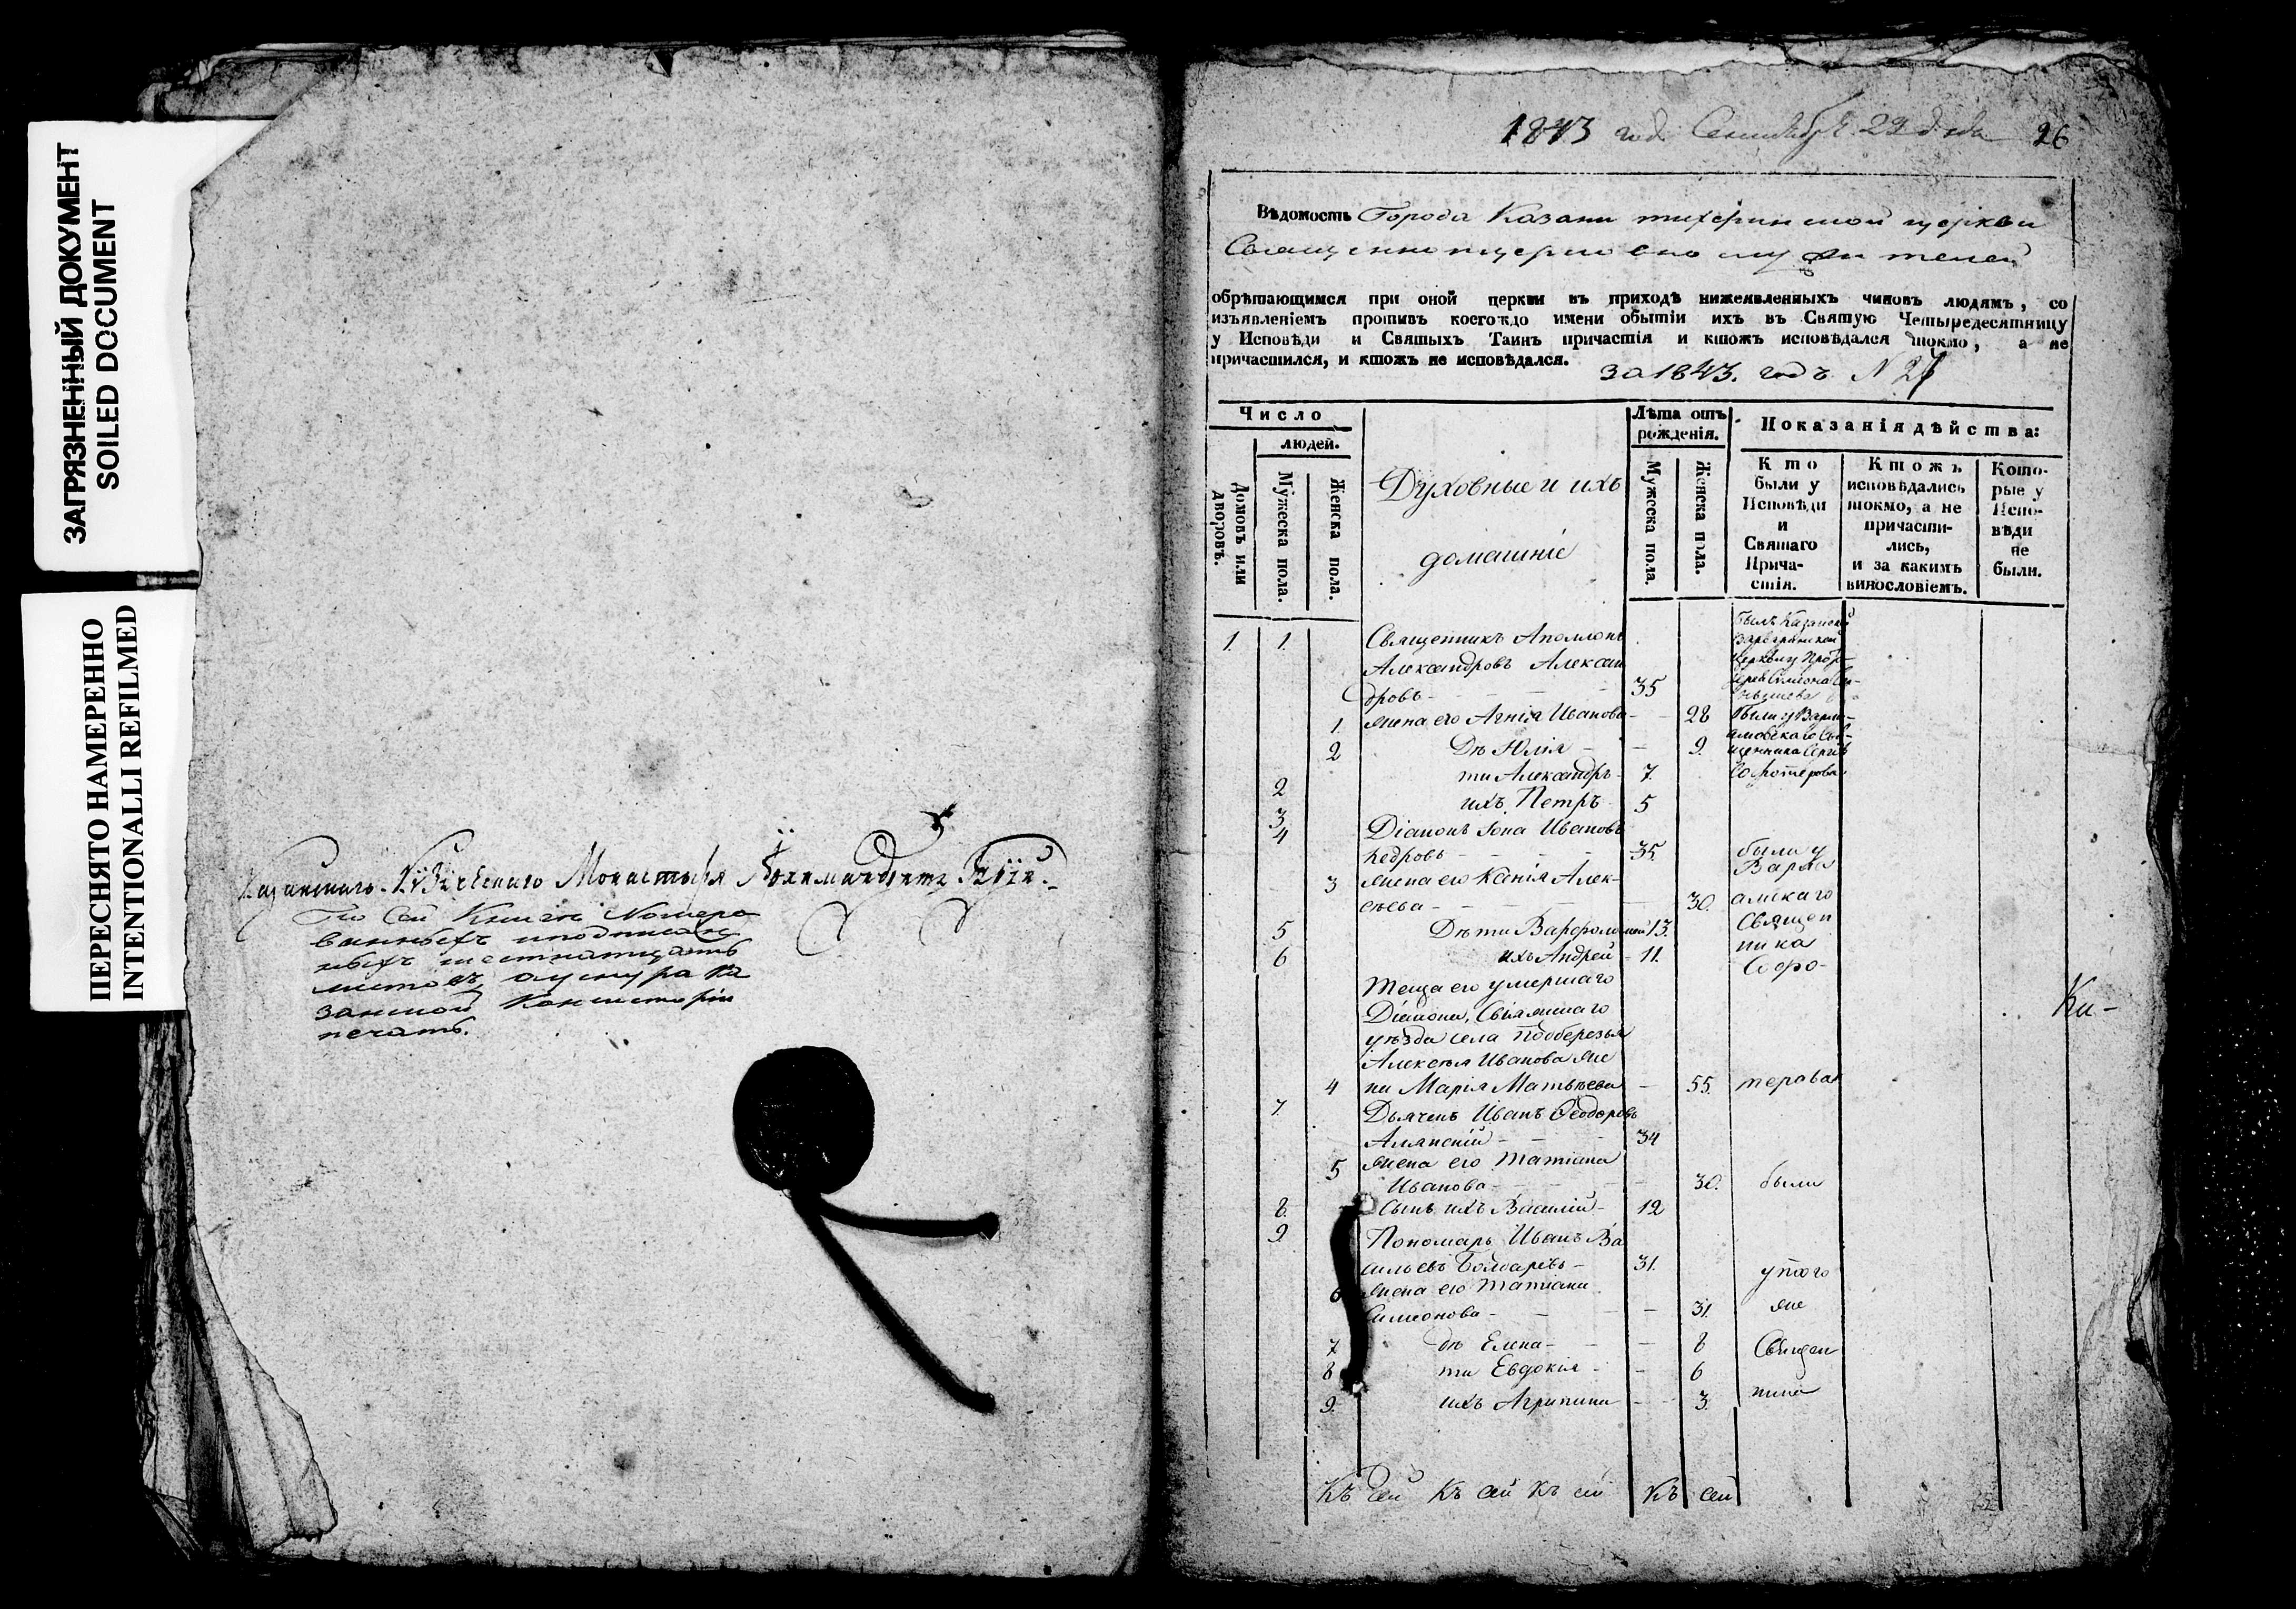 ЗАГРЯЗНЕННЫЙ ДОКУМЕНТ
SOILED DOCUMENT
ПЕРЕСНЯТО НАМЕРЕННО
INTENTIONALLI REFILMED
Монастыря
По сей книгѣ номеро
ванныхъ и подписан
ныхъ шестнатцать
листовъ, а у шнура Ка
занской Консисторіи
печать.
1843 год. Сентября 29 дня 26
Вѣдомость Города Казани тихвинской церкви
Священноцерковнослужителей
обрѣтающимся при оной церкви въ приходѣ нижеявленныхъ чиновъ людямъ, со
изъявленіемъ противъ коегождо имени обытіи ихъ въ Святую Четыредесятницу
у Исповѣди и Святыхъ Таинъ причастія и ктожъ исповѣдался токмо, а не
причастился, и ктожъ не исповѣдался.
за 1843. годъ N
Число
людей.
Домовъ или дворовъ.
Мужеска пола.
Женска пола.
Духовные и ихъ
домашніе
Лѣта отъ
рожденія.
Мужеска пола.
Женска пола.
Показанія дѣйства:
Кто
были у
Исповѣди
и
Святаго
Прича-
стія.
Ктожъ
исповѣдались
токмо, а не
причасти-
лись,
и за какимъ
винословіемъ.
Кото-
рые у
Испо-
вѣди
не
были.
1. 1. Священникъ Аполлонъ
Александровъ Алексан
дровъ - 35
1. жена его Агнія Иванова - 28
2 Дѣ Юлія - 9.
2 ти Александръ 7.
3 ихъ Петръ 5
4 Діаконъ Іона Ивановъ
Кедровъ - 35. были у
3 жена его Ксенія Алек-
сѣева - 30.
5 Дѣти Варфоломей 13.
6 ихъ Андрей - 11.
Теща его умершаго
Діакона, Свіяжскаго
уѣзда села Подберезья
Алексѣя Иванова же
4 на Марія Матвѣева - 55.
7. Дьячекъ Иванъ Феодоровъ
- 34
5 жена его Татіана
Иванова - 30. были
8. Сынъ ихъ Василій - 12
9. Пономарь Иванъ Ва
сильевъ - 31. у того
6 жена его Татіана
Симеонова - 31. же
7 дѣ Елена - 8 Священ
8 ти Евдокія - 6
9. ихъ Агрипина - 3. ника
Къ сей Къ сей Къ сей Къ сей
Ка-